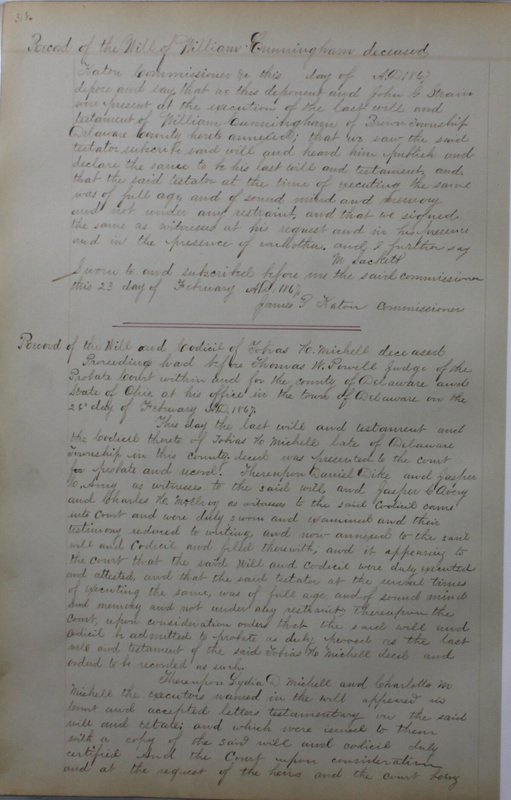 Record of the Will of William Cunningham deceased
Katon Commissioner &c this day of A.D 1867
depose and say that we this deponent and John C
were present at the execution of the last will and
testament of William Cunningham of Brown Township
Delaware County hereto annexed; that we saw the said
testator subscribe said will and heard him publish and
declare the same to be his last will and testament, and
that the said testator at the time of executing the same
was of full age and of sound mind and memory
and not under any restraint, and that we signed
the same as witnesses at his request and in his presence
and in the presence of each other. and I further say
M Sackett
Sworn to and subscribed before me the said commissioner
this 23 day of February AD, 1867
James P Katon Commissioner
Record of the Will and Codicil of Tobias H. Michell deceased
Proceedings had before Thomas W. Powell Judge of the
Probate Court within and for the county of Delaware and
State of Ohio at his office in the town of Delaware on the
25 day of February AD, 1867.
This day the last will and testament and
the Codicil thereto of Tobias H Michell late of Delaware
Township in this county decd was presented to the court
for probate and record. Thereupon Daniel Dike and Jasper
C. Avery as witnesses to the said will, and Jasper C Avery
and Charles H. McElroy as witnesses to the said Codicil came
into Court and were duly sworn and examined and their
testimony reduced to writing and now annexed to the said
will and Codicil and filed therewith, and it appearing to
the court that the said Will and Codicil were duly executed
and attested and that the said testator at the several times
of executing the same, was of full age, and of sound mind
and memory and not under any restraint, thereupon the
Court, upon consideration orders that the said will and
codicil be admitted to probate as duly proved as the last
will and testament of the said Tobias H Michell decd and
ordered to be recorded as such.
Thereupon Lydia D Michell and Charlotte M
Michell the executors named in the will appeared in
Court and accepted letters testamentary on the said
will and estate; and which were issued to them
with a copy of the said will and codicil duly
certified And the Court upon consideration
and at the request of the heirs and the court being